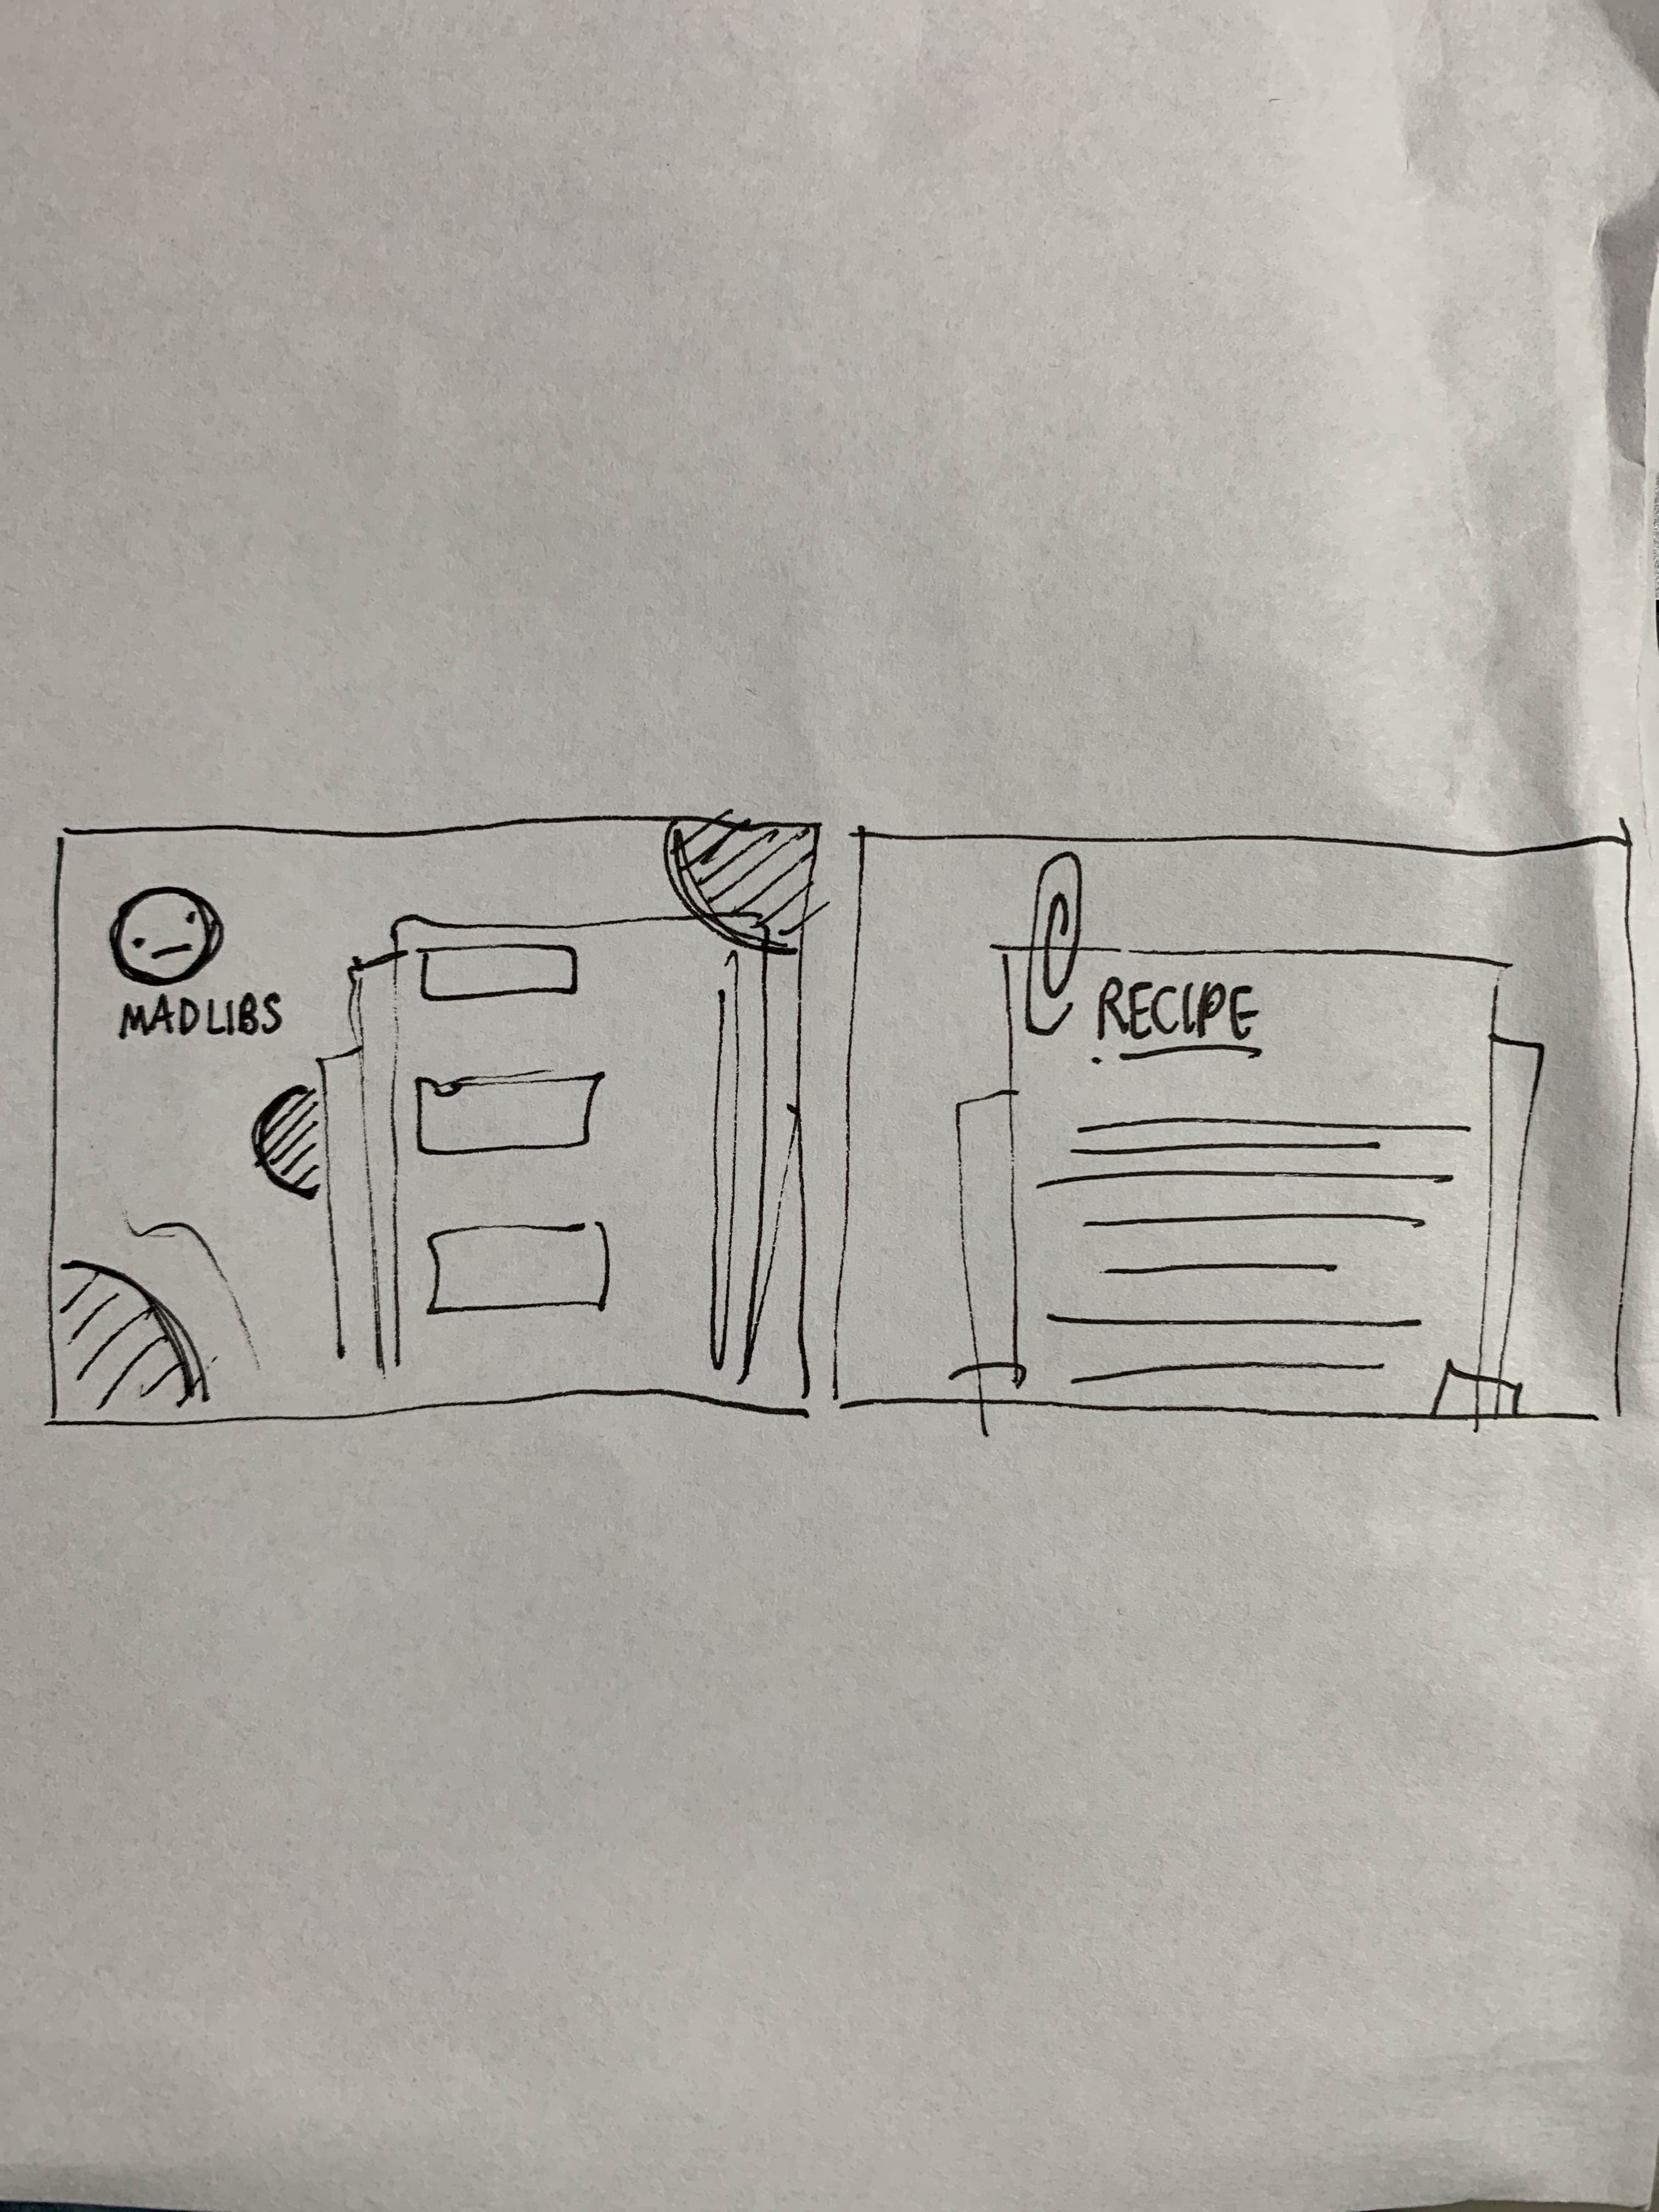 MADLIBS
RECIPE